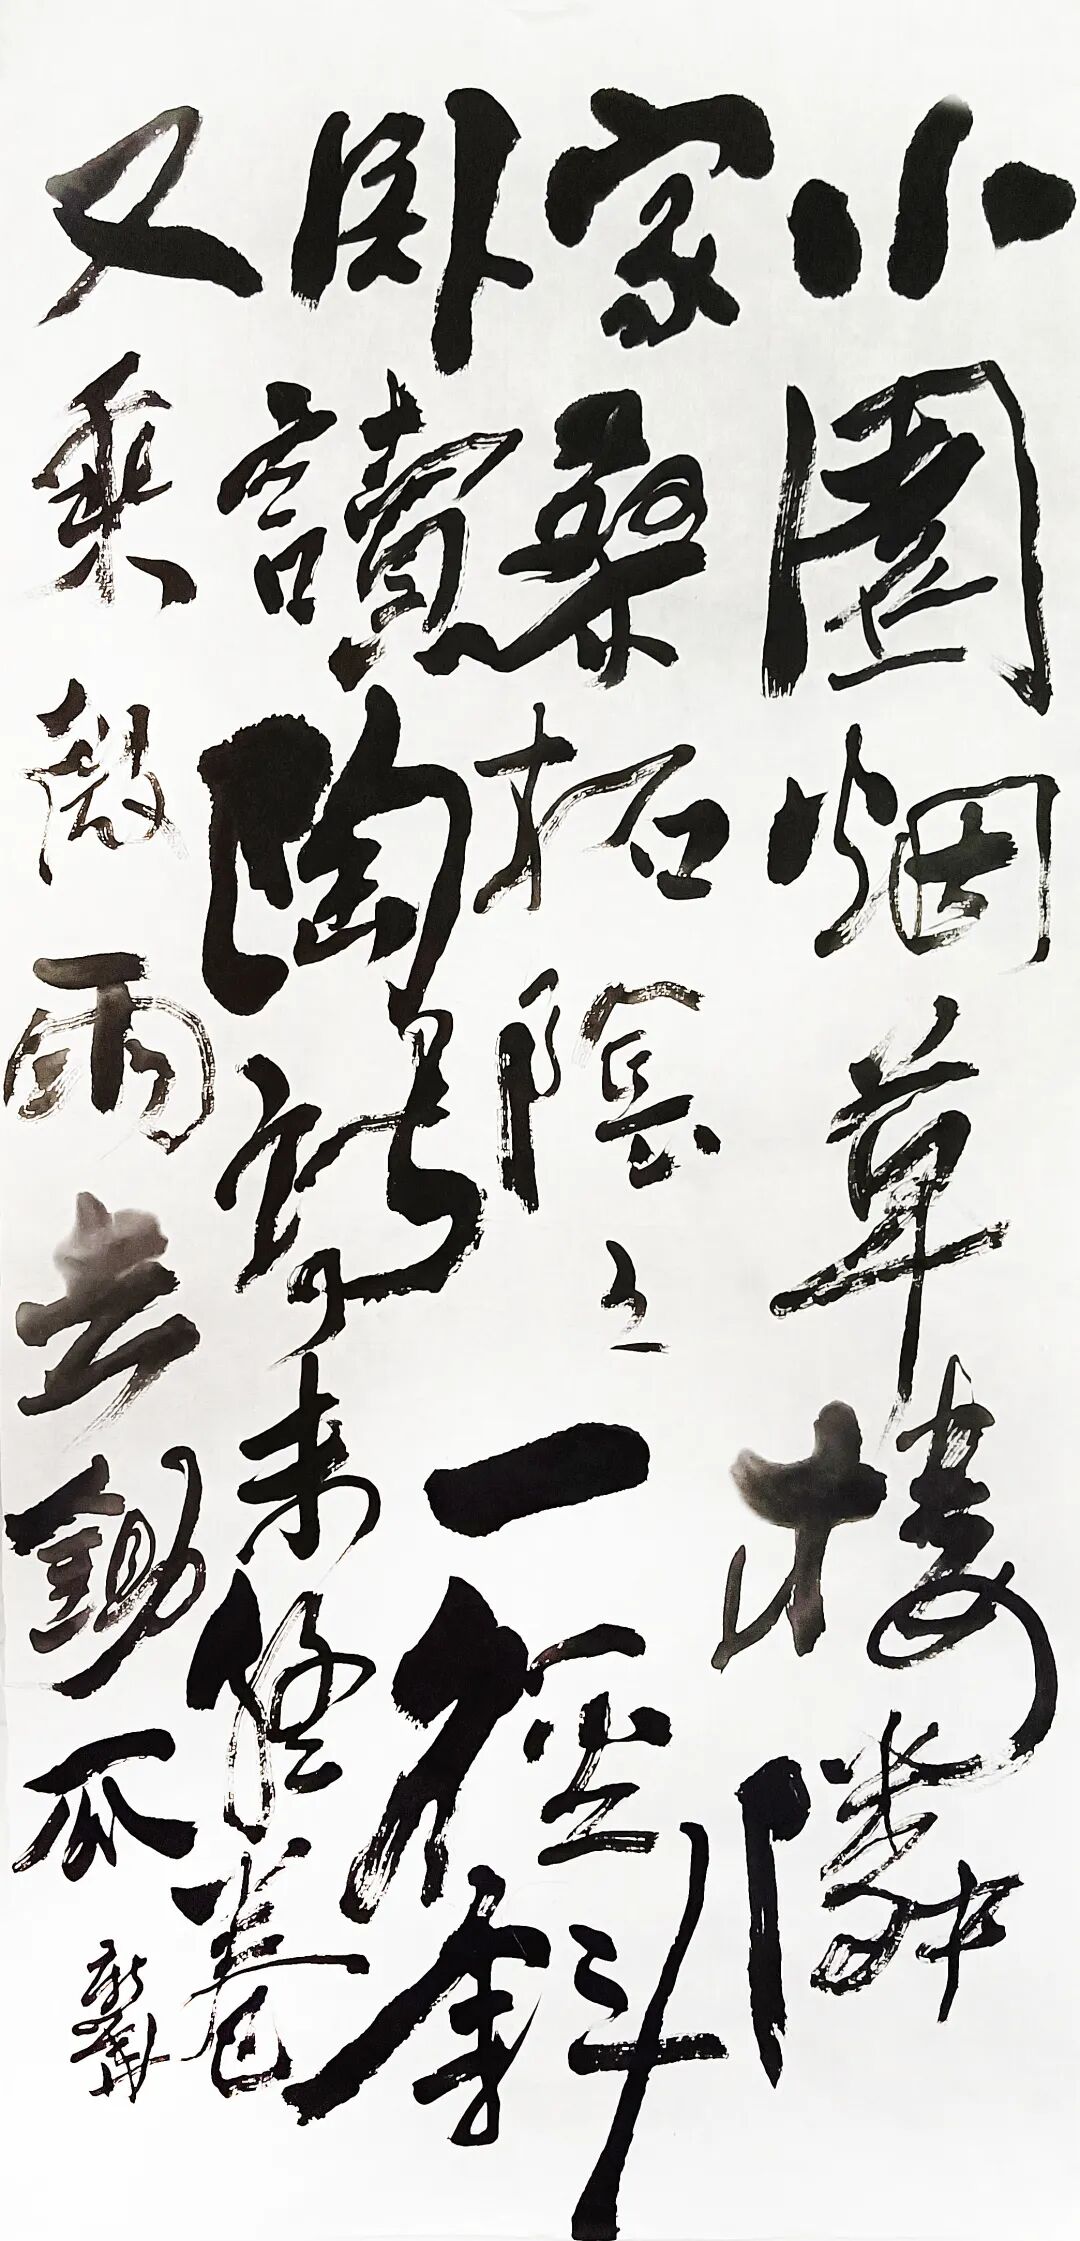 小園烟草接隣
家桑柘陰陰一徑斜
卧讀陶詩未終卷
又乘微雨去鋤瓜